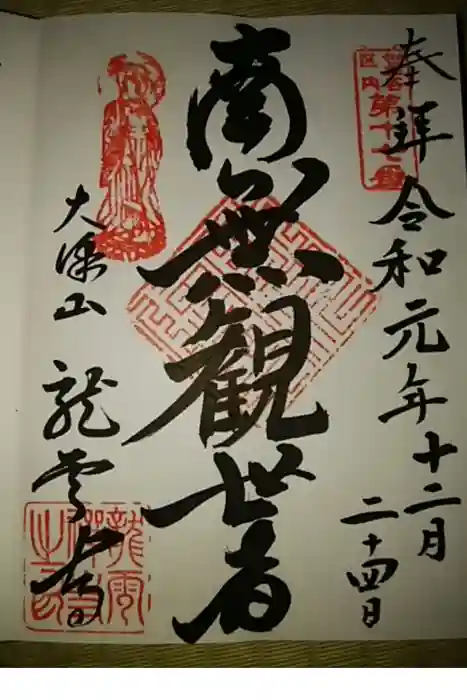 奉拝
令和元年十二月
二十四日
区内
第十七番
南無観世音
大澤山
龍雲寺
龍雲
禅寺
之印